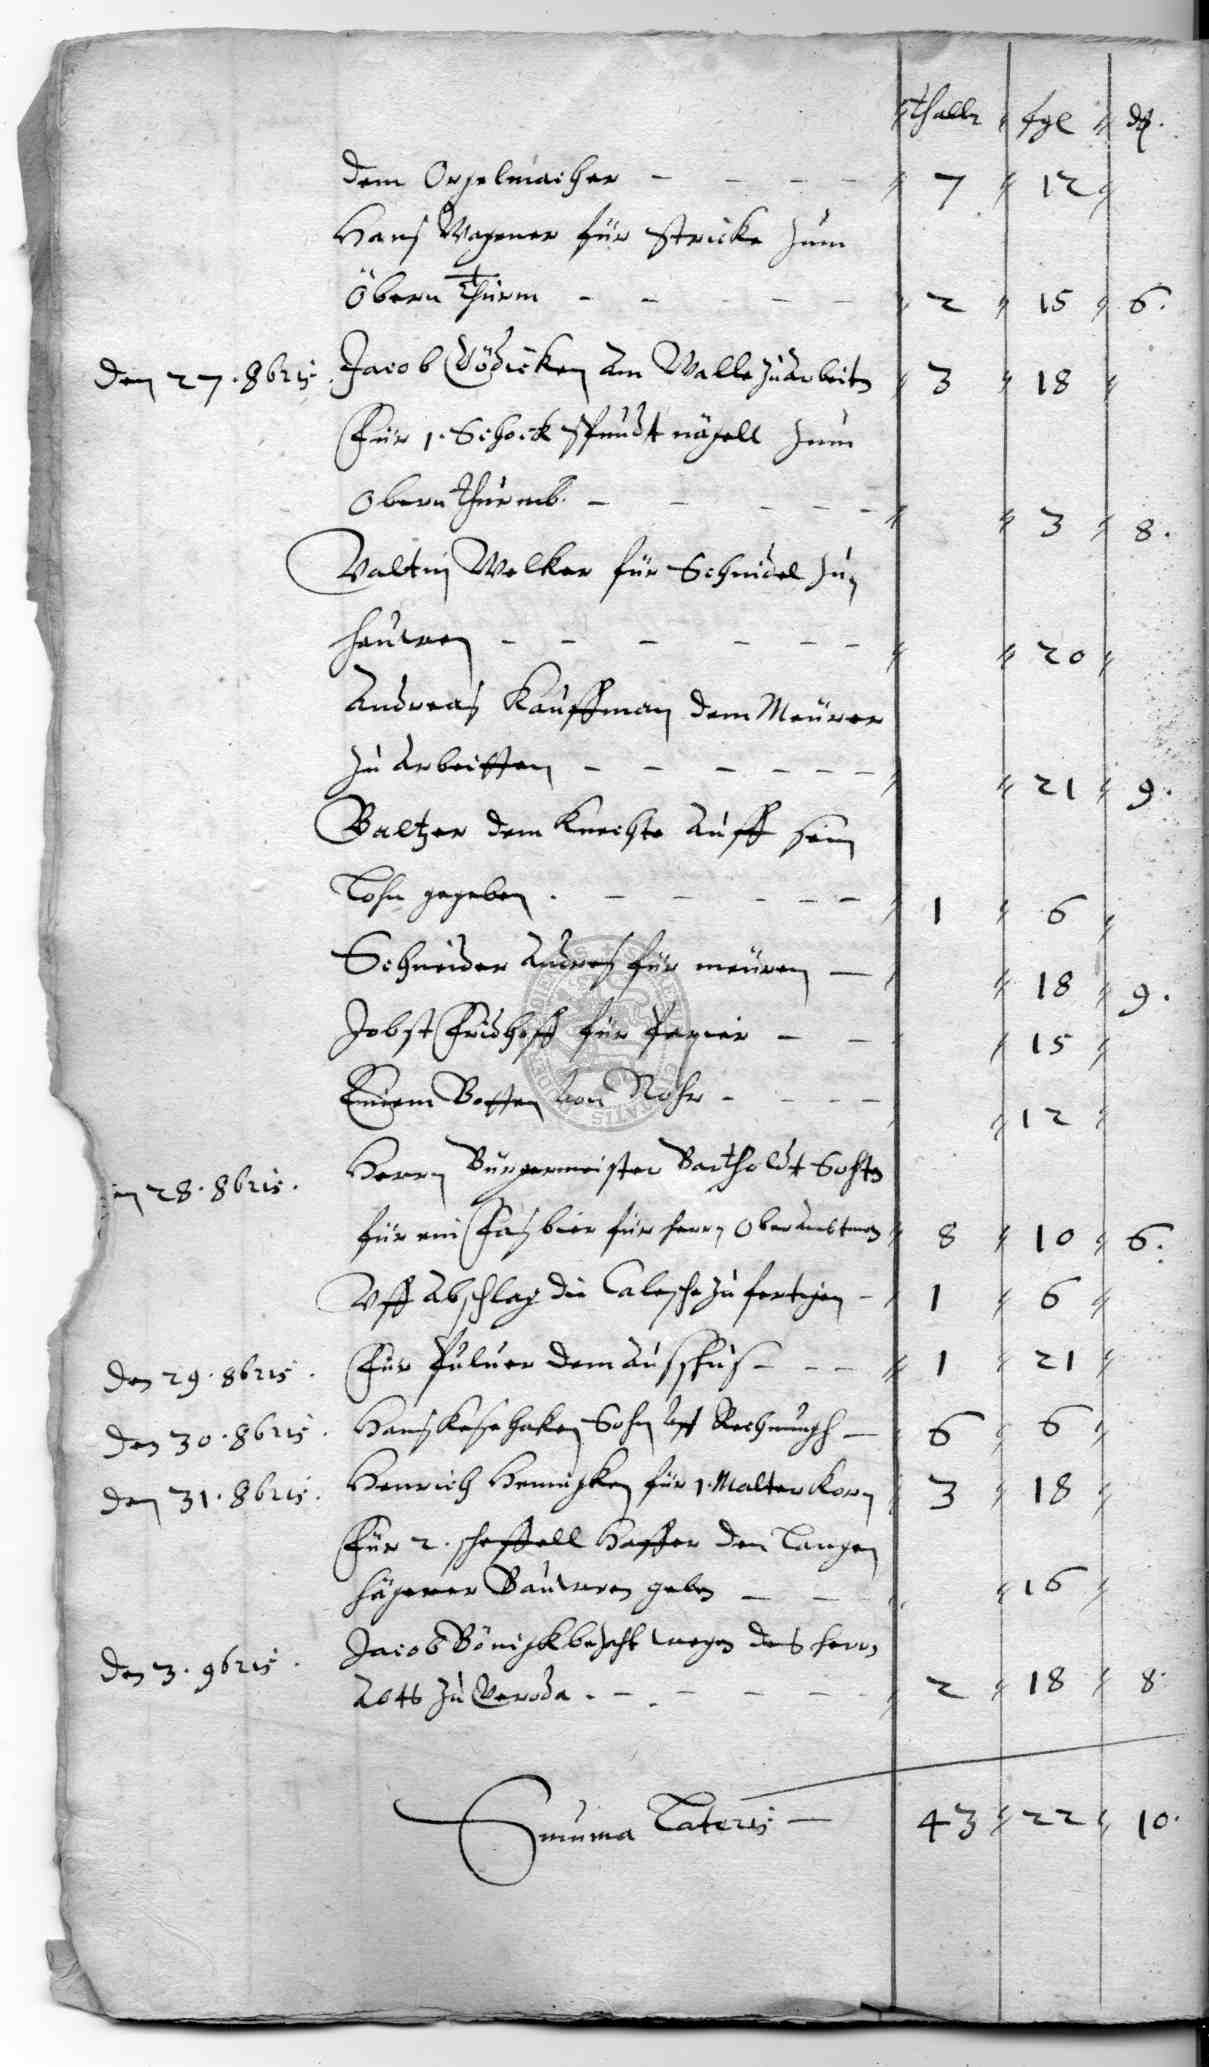 thaler fgl d.
dem Orgelmacher - - - - 7 12
Hans Wagener für stricke zum
Öbern Thurm - - - - - 2 15 6.
Den 27. 8bris. Jacob Lödicken am Walle zu arbeiten 3 18
Für 1. Schock spundt nägell zum
Obern thurmb. - - - - - 3 8.
Valtin Welker für Schnidel zu
hauwen - - - - - - 20
Andreas Kauffman dem Meurer
zu arbeitten - - - - - - 21 9.
Baltzer dem Knechte auff sein
Lohn gegeben. - - - - - 1 6
Schneider Andres für meuren - 18 9.
Jobst Fridhoff für Papier - - 15
Einem Botten von Rohr - - - - 12
28. 8bris. Herrn Bürgermeister Barthold
für ein Fas bier für herrn Oberambtman 8 10 6.
Uff abschlag die Calesche zu fertigen - 1 6
Den 29. 8bris. Für Puluer dem ausschus - - - 1 21
Den 30. 8bris. Hans Kesehaken Sohn uff Rechnungh - 6 6
Den 31. 8bris. Henrich Hennigken für 1. Malter Korn 3 18
Für 2. scheffell Haffer den Langen
hägener Bauwren geben - - - 16
Den 3. 9bris. Jacob Bönigk bezahlt wegen des herrn
zu - - - - - - 2 18 8.
Summa Lateris - 43 22 10.